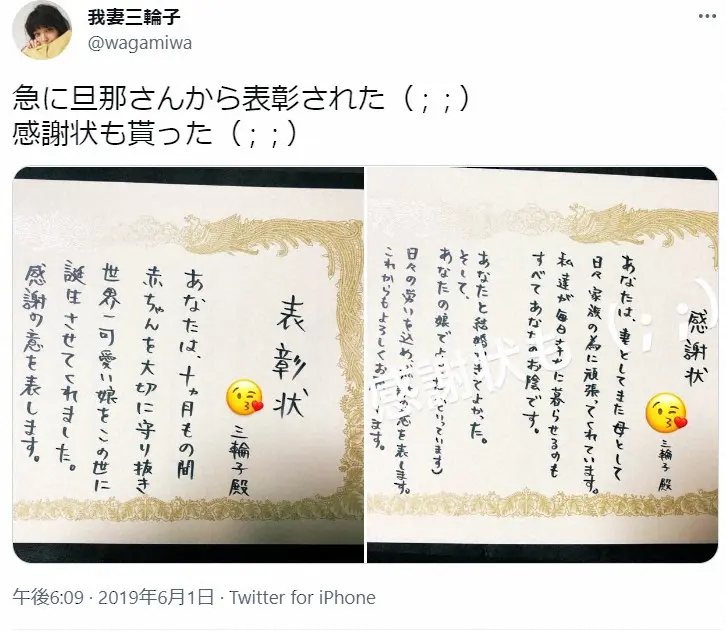 我妻三輪子
@wagamiwa
急に旦那さんから表彰された（ ; ; ）
感謝状も貰った（ ; ; ）
表彰状
三輪子殿
あなたは、十ヵ月もの間
赤ちゃんを大切に守り抜き
世界一可愛い娘をこの世に
誕生させてくれました。
感謝の意を表します。
感謝状
三輪子殿
あなたは、妻としてまた母として
日々家族の為に頑張ってくれています。
私達が毎日幸せに暮らせるのも
すべてあなたのお陰です。
あなたと結婚できてよかった。
そして、
あなたの娘でよ いっています)
日々の労いを込め の意を表します。
これからもよろしくお ます。
感謝状も（ ; ; ）
午後6:09 · 2019年6月1日 · Twitter for iPhone